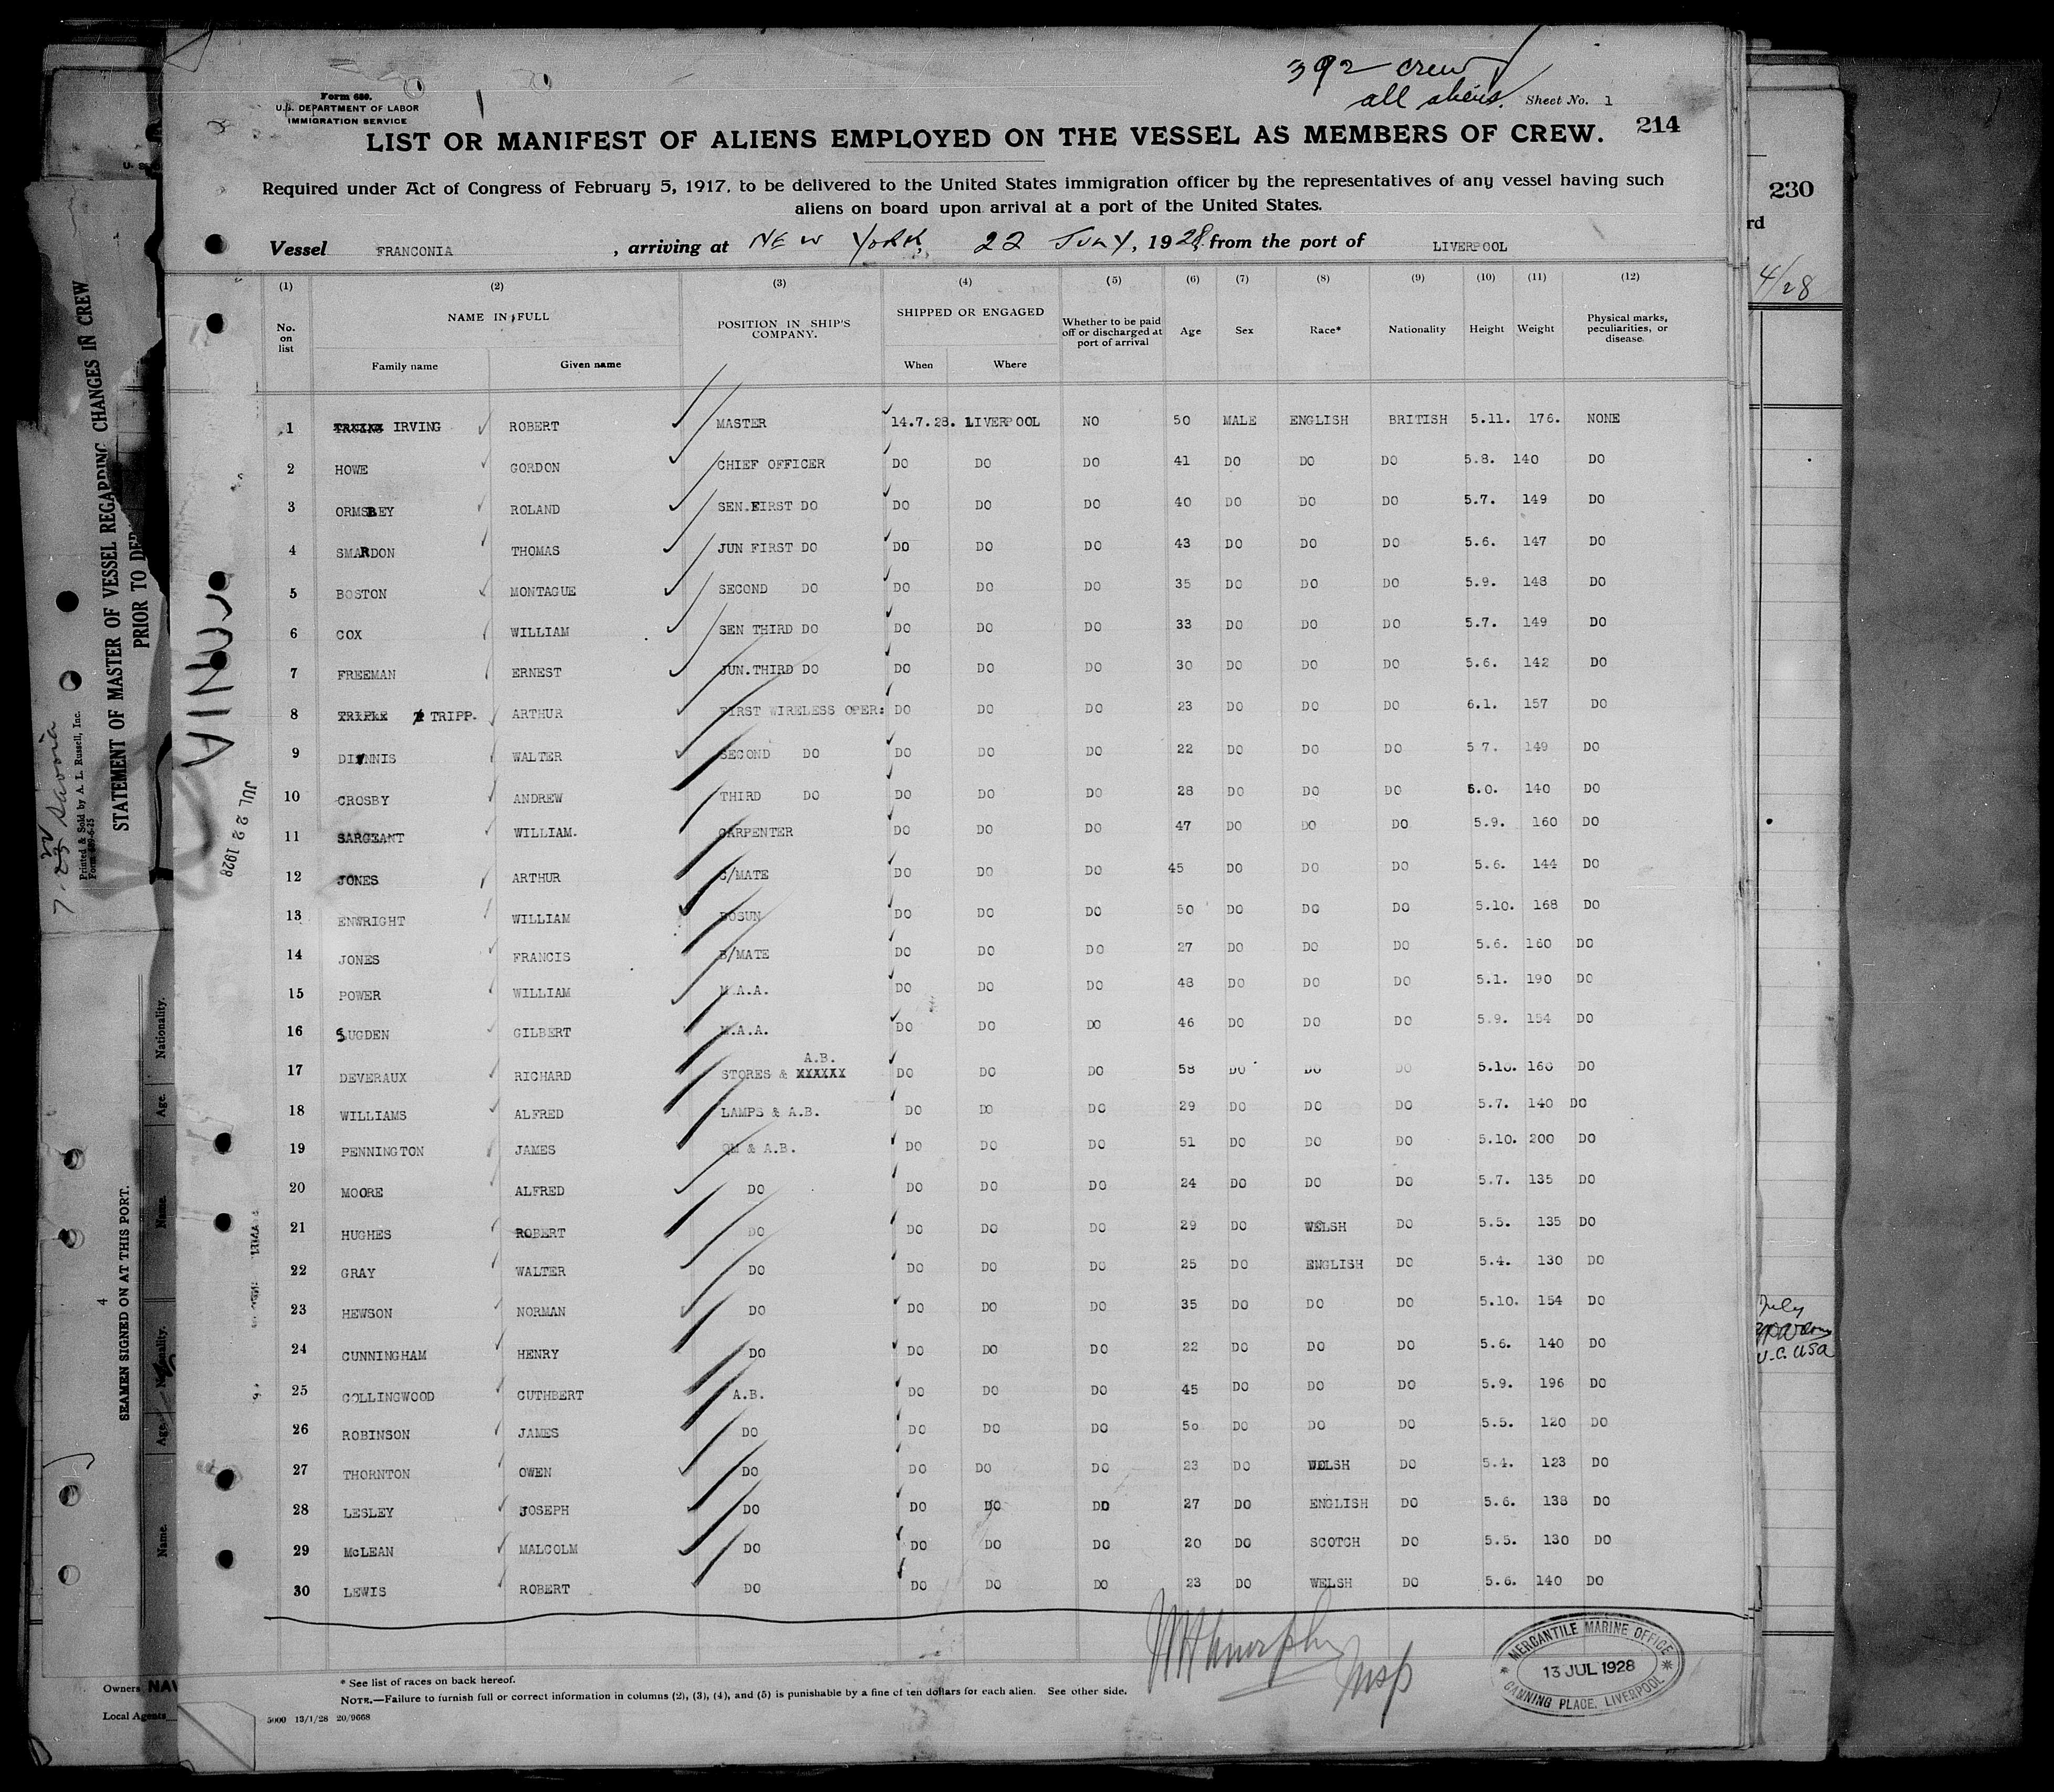 392 crew
all aliens. Sheet No. 1
Form 680.
U.S. DEPARTMENT OF LABOR
IMMIGRATION SERVICE
214
LIST OR MANIFEST OF ALIENS EMPLOYED ON THE VESSEL AS MEMBERS OF CREW.
Required under Act of Congress of February 5, 1917, to be delivered to the United States immigration officer by the representatives of any vessel having such
aliens on board upon arrival at a port of the United States.
Vessel FRANCONIA , arriving at NEW YORK, 22 JULY, 1928, from the port of LIVERPOOL
(1) (2) (3) (4) (5) (6) (7) (8) (9) (10) (11) (12)
No. on list NAME IN FULL Family name Given name POSITION IN SHIP'S COMPANY. SHIPPED OR ENGAGED When Where Whether to be paid off or discharged at port of arrival Age Sex Race* Nationality Height Weight Physical marks, peculiarities, or disease.
1 IRVING ROBERT MASTER 14.7.28. LIVERPOOL NO 50 MALE ENGLISH BRITISH 5.11. 176. NONE
2 HOWE GORDON CHIEF OFFICER DO DO DO 41 DO DO DO 5.8. 140 DO
3 ORMSBEY ROLAND SEN.FIRST DO DO DO DO 40 DO DO DO 5.7. 149 DO
4 SMARDON THOMAS JUN FIRST DO DO DO DO 43 DO DO DO 5.6. 147 DO
5 BOSTON MONTAGUE SECOND DO DO DO DO 35 DO DO DO 5.9. 148 DO
6 COX WILLIAM SEN THIRD DO DO DO DO 33 DO DO DO 5.7. 149 DO
7 FREEMAN ERNEST JUN.THIRD DO DO DO DO 30 DO DO DO 5.6. 142 DO
8 TRIPP. ARTHUR FIRST WIRELESS OPER: DO DO DO 23 DO DO DO 6.1. 157 DO
9 WALTER SECOND DO DO DO DO 22 DO DO DO 5 7. 149 DO
10 CROSBY ANDREW THIRD DO DO DO DO 28 DO DO DO 6.0. 140 DO
11 SARGEANT WILLIAM. CARPENTER DO DO DO 47 DO DO DO 5.9. 160 DO
12 JONES ARTHUR C/MATE DO DO DO 45 DO DO DO 5.6. 144 DO
13 ENWRIGHT WILLIAM BOSUN DO DO DO 50 DO DO DO 5.10. 168 DO
14 JONES FRANCIS B/MATE DO DO DO 27 DO DO DO 5.6. 160 DO
15 POWER WILLIAM M.A.A. DO DO DO 48 DO DO DO 5.1. 190 DO
16 SUGDEN GILBERT M.A.A. DO DO DO 46 DO DO DO 5.9. 154 DO
17 DEVERAUX RICHARD STORES & A.B. XXXXXX DO DO DO 58 DO DO DO 5.10. 160 DO
18 WILLIAMS ALFRED LAMPS & A.B. DO DO DO 29 DO DO DO 5.7. 140 DO
19 PENNINGTON JAMES QM & A.B. DO DO DO 51 DO DO DO 5.10. 200 DO
20 MOORE ALFRED DO DO DO DO 24 DO DO DO 5.7. 135 DO
21 HUGHES ROBERT DO DO DO DO 29 DO WELSH DO 5.5. 135 DO
22 GRAY WALTER DO DO DO DO 25 DO ENGLISH DO 5.4. 130 DO
23 HEWSON NORMAN DO DO DO DO 35 DO DO DO 5.10. 154 DO
24 CUNNINGHAM HENRY DO DO DO DO 22 DO DO DO 5.6. 140 DO
25 COLLINGWOOD CUTHBERT A.B. DO DO DO 45 DO DO DO 5.9. 196 DO
26 ROBINSON JAMES DO DO DO DO 50 DO DO DO 5.5. 120 DO
27 THORNTON OWEN DO DO DO DO 23 DO WELSH DO 5.4. 123 DO
28 LESLEY JOSEPH DO DO DO DO 27 DO ENGLISH DO 5.6. 138 DO
29 McLEAN MALCOLM DO DO DO DO 20 DO SCOTCH DO 5.5. 130 DO
30 LEWIS ROBERT DO DO DO DO 23 DO WELSH DO 5.6. 140 DO
MERCANTILE MARINE OFFICE
13 JUL 1928
CANNING PLACE, LIVERPOOL
* See list of races on back hereof.
NOTE.—Failure to furnish full or correct information in columns (2), (3), (4), and (5) is punishable by a fine of ten dollars for each alien. See other side.
5000 13/1/28 20/9668
JUL 22 1928
STATEMENT OF MASTER OF VESSEL REGARDING CHANGES IN CREW
PRIOR TO DEP
Printed & Sold by A. L. Russell, Inc.
SEAMEN SIGNED ON AT THIS PORT.
4
Name. Age. Nationality. Name. Age. Nationality.
Owners NAV
Local Agents
230
rd
4/28
July
U.C. USA